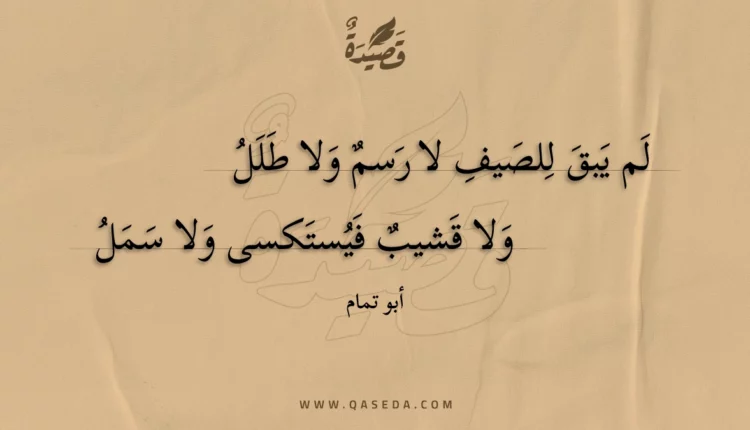 قَصِيدَةٌ
لَم يَبقَ لِلصَيفِ لا رَسمٌ وَلا طَلَلُ
وَلا قَشيبٌ فَيُستَكسى وَلا سَمَلُ
أبو تمام
WWW.QASEDA.COM